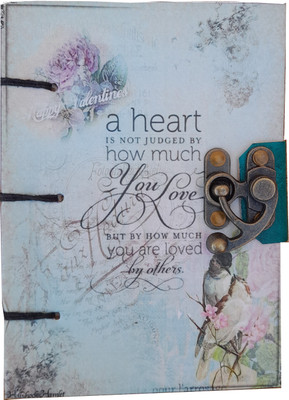 Happy Valentines
a heart
IS NOT JUDGED BY
how much
You Love
BUT BY HOW MUCH
you are loved
by others.